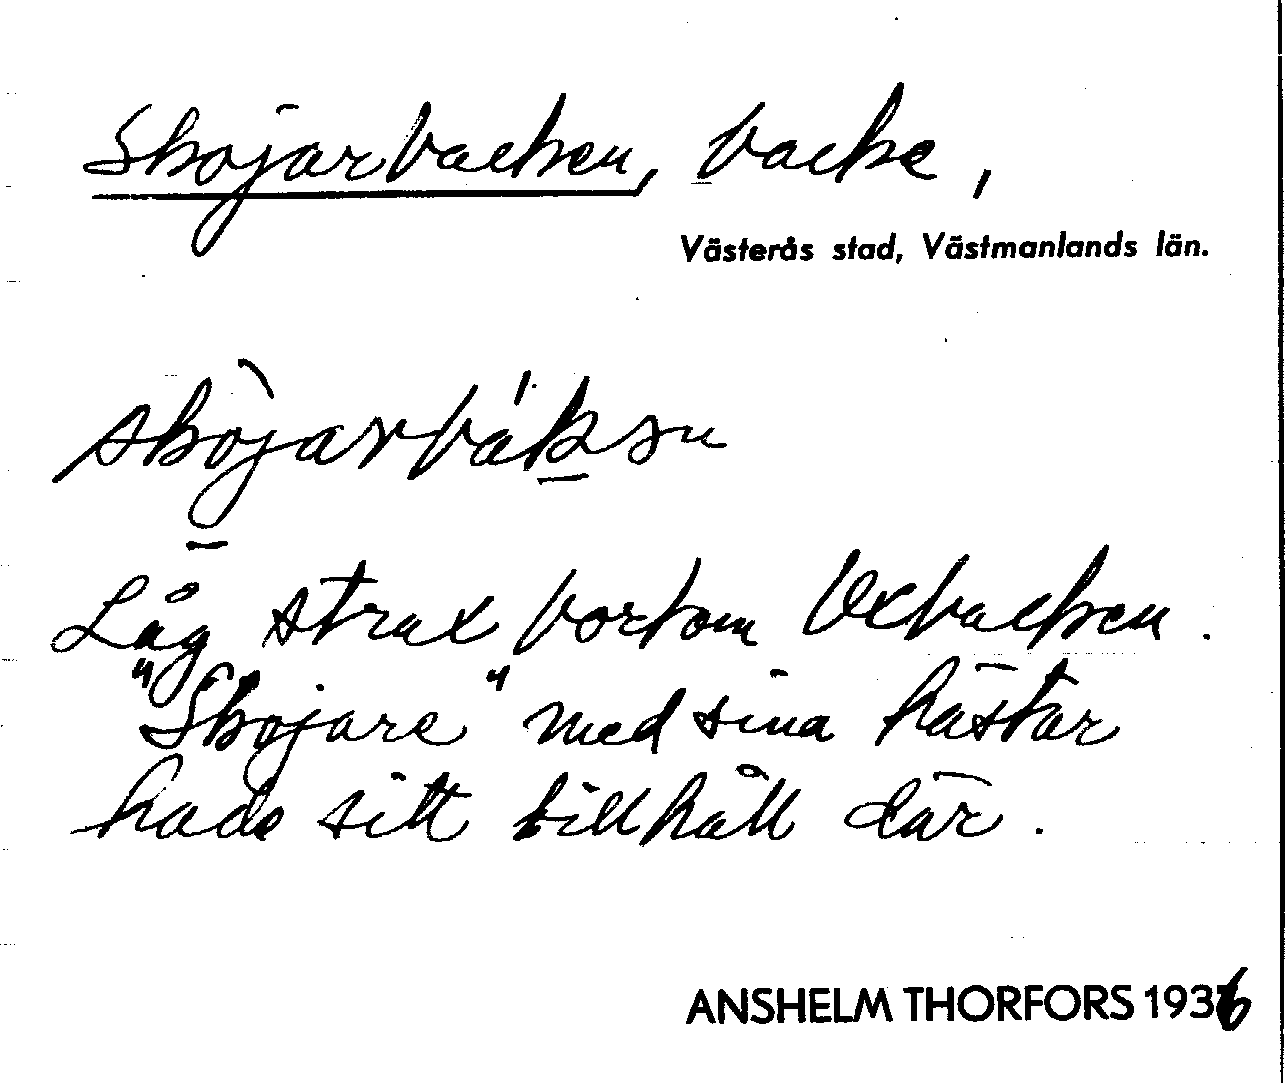 Skojarbacken, backe,
Västerås stad, Västmanlands län.
skòjarbák̲ən
Låg strax bortom Oxbacken.
"Skojare" med sina hästar
hade sitt tillhåll där.
ANSHELM THORFORS 1936